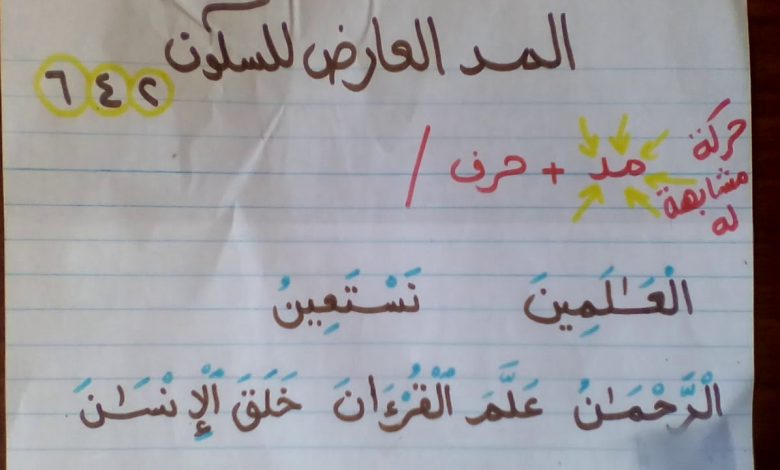 المد العارض للسكون
٢ ٤ ٦
حركة مشابهة له
مد + حرف /
الْعَـٰلَمِينَ نَسْتَعِينُ
الْرَّحْمَـٰنُ عَلَّمَ الْقُرْءَانَ خَلَقَ الْإِنْسَـٰنَ